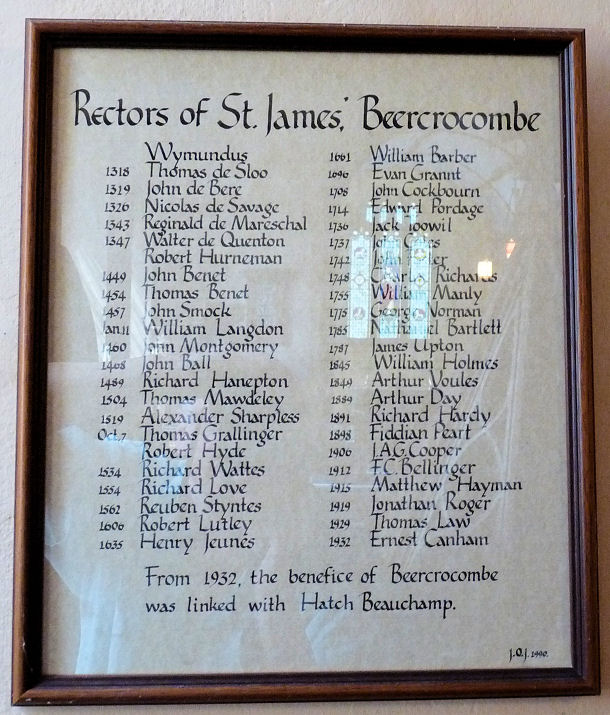 Rectors of St. James', Beercrocombe
Wymundus
1318 Thomas de Sloo
1319 John de Bere
1326 Nicolas de Savage
1343 Reginald de Mareschal
1347 Walter de Quenton
Robert Hurneman
1449 John Benet
1454 Thomas Benet
1457 John Smock
Jan.11 William Langdon
1460 John Montgomery
1468 John Ball
1489 Richard Hanepton
1504 Thomas Mawdeley
1519 Alexander Sharpless
Oct.7 Thomas Grallinger
Robert Hyde
1534 Richard Wattes
1554 Richard Love
1562 Reuben Styntes
1606 Robert Lutley
1635 Henry Jeunes
1661 William Barber
1696 Evan Grannt
1708 John Cockbourn
1714 Edward Pordage
1736 Jack
1737 John
1742 John
1748 Charles Richards
1755 William Manly
1775 George Norman
1785 Nathaniel Bartlett
1787 James Upton
1845 William Holmes
1849 Arthur Voules
1889 Arthur Day
1891 Richard Hardy
1898 Fiddian Peart
1906 J.A.G. Cooper
1912 F.C. Bellinger
1915 Matthew Hayman
1919 Jonathan Roger
1929 Thomas Law
1932 Ernest Canham
From 1932, the benefice of Beercrocombe
was linked with Hatch Beauchamp.
J.O.J. 1990.